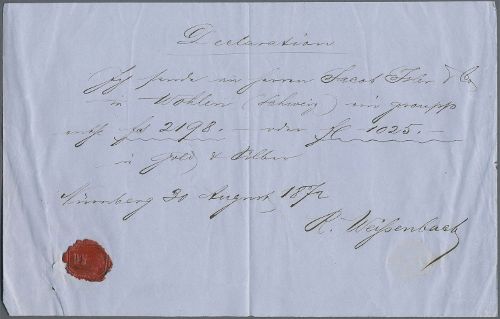 Declaration
Ich sende an Herren Jacob Isler & Co
in Wohlen (Schweiz) ein groupp
enth. fs 2198.- oder fl 1025.-
in Gold & Silber
Nürnberg 30 August 1872
R. Weißenbach